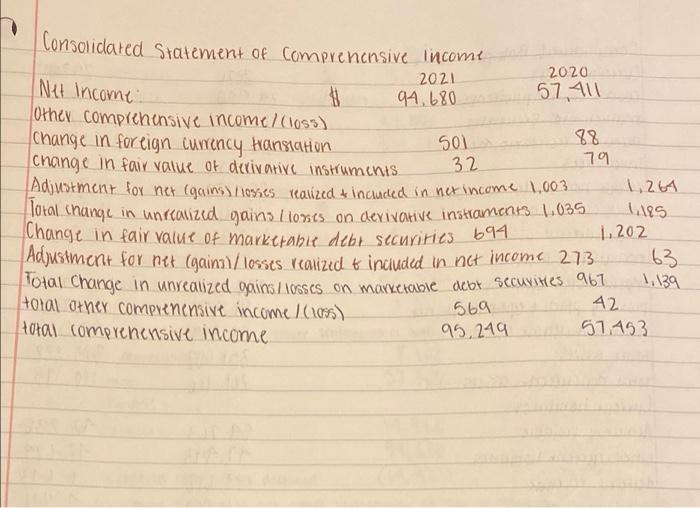 Consolidated Statement of Comprehensive income
2021 2020
Net Income: $ 94,680 57,411
Other comprehensive income/(loss)
change in foreign currency translation 501 88
change in fair value of derivative instruments 32 79
Adjustment for net (gains)/losses realized & included in net income 1,003 1,264
Total change in unrealized gains/losses on derivative instruments 1,035 1,185
Change in fair value of marketable debt securities 694 1,202
Adjustment for net (gains)/losses realized & included in net income 273 63
Total Change in unrealized gains/losses on marketable debt securities 967 1,139
total other comprehensive income/(loss) 569 42
total comprehensive income 95,249 57,453